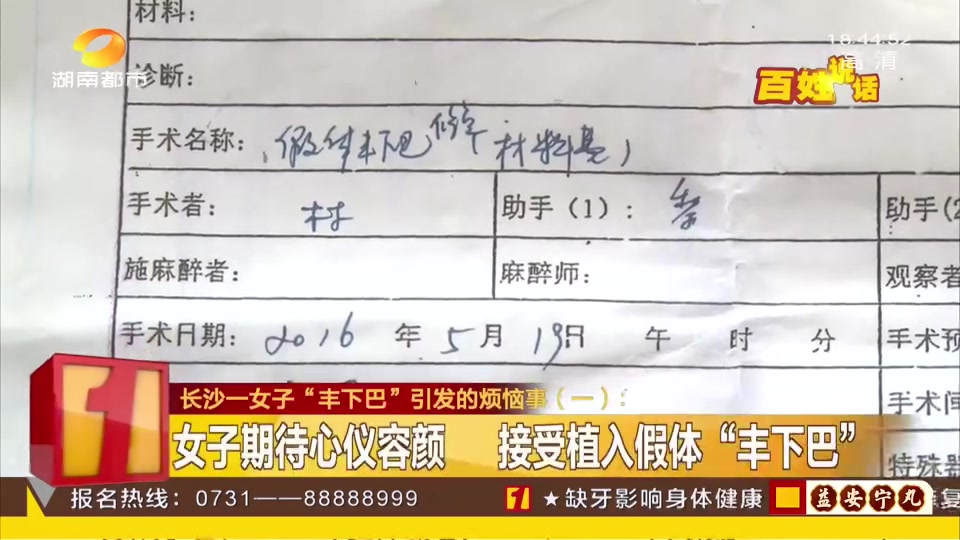 材料：
18:44:52
高清
湖南都市
诊断：
百姓说话
手术名称：假体丰下巴 材料
手术者：村
助手（1）：
助手(2
施麻醉者：
麻醉师：
观察者
手术日期：2016 年 5 月 19日 午 时 分
手术预
长沙一女子“丰下巴”引发的烦恼事（一）：
手术间
女子期待心仪容颜 接受植入假体“丰下巴”
特殊器
报名热线：0731——88888999
1 ★缺牙影响身体健康
益安宁丸
康复